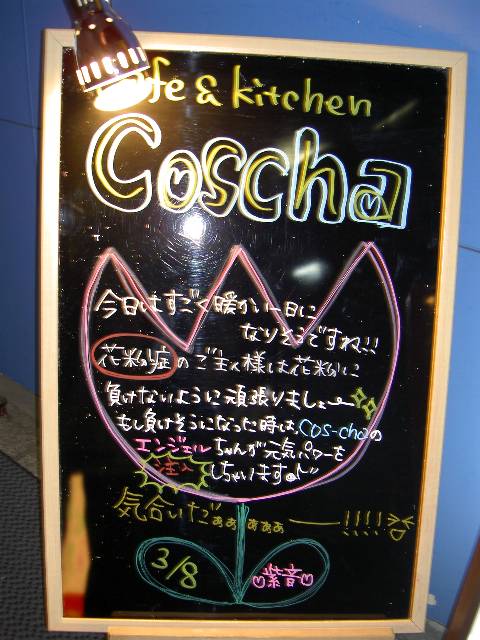 Cafe & kitchen
Coscha
今日はすごく暖かい一日に
なりそうですね!!
花粉症のご主人様は花粉に
負けないように頑張りましょー
もし負けそうになった時は、cos-chaの
エンジェルちゃんが元気パワーを
注入しちゃいます♪
気合いだぁぁぁぁぁー!!!!
3/8
紫音